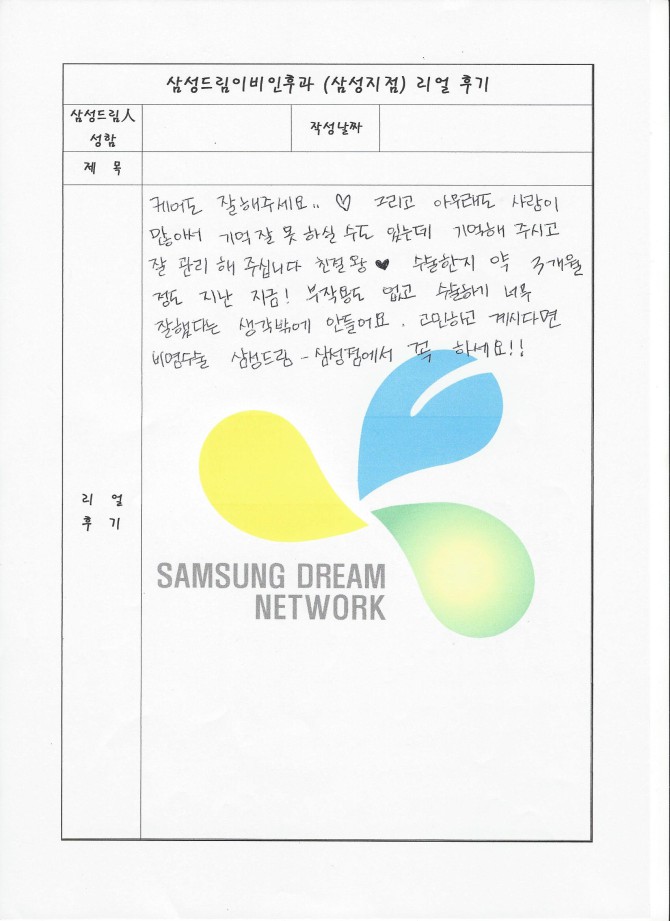 삼성드림이비인후과 (삼성지점) 리얼 후기
삼성드림人
성함
작성날짜
제 목
케어도 잘해주세요.. ♡ 그리고 아무래도 사람이
많아서 기억 잘 못 하실 수도 있는데 기억해 주시고
잘 관리 해 주십니다 친절왕 ♥ 수술한지 약 3개월
정도 지난 지금! 부작용도 없고 수술하기 너무
잘했다는 생각밖에 안들어요. 고민하고 계시다면
비염수술 삼성드림 - 삼성점에서 꼭 하세요!!
리 얼
후 기
SAMSUNG DREAM
NETWORK